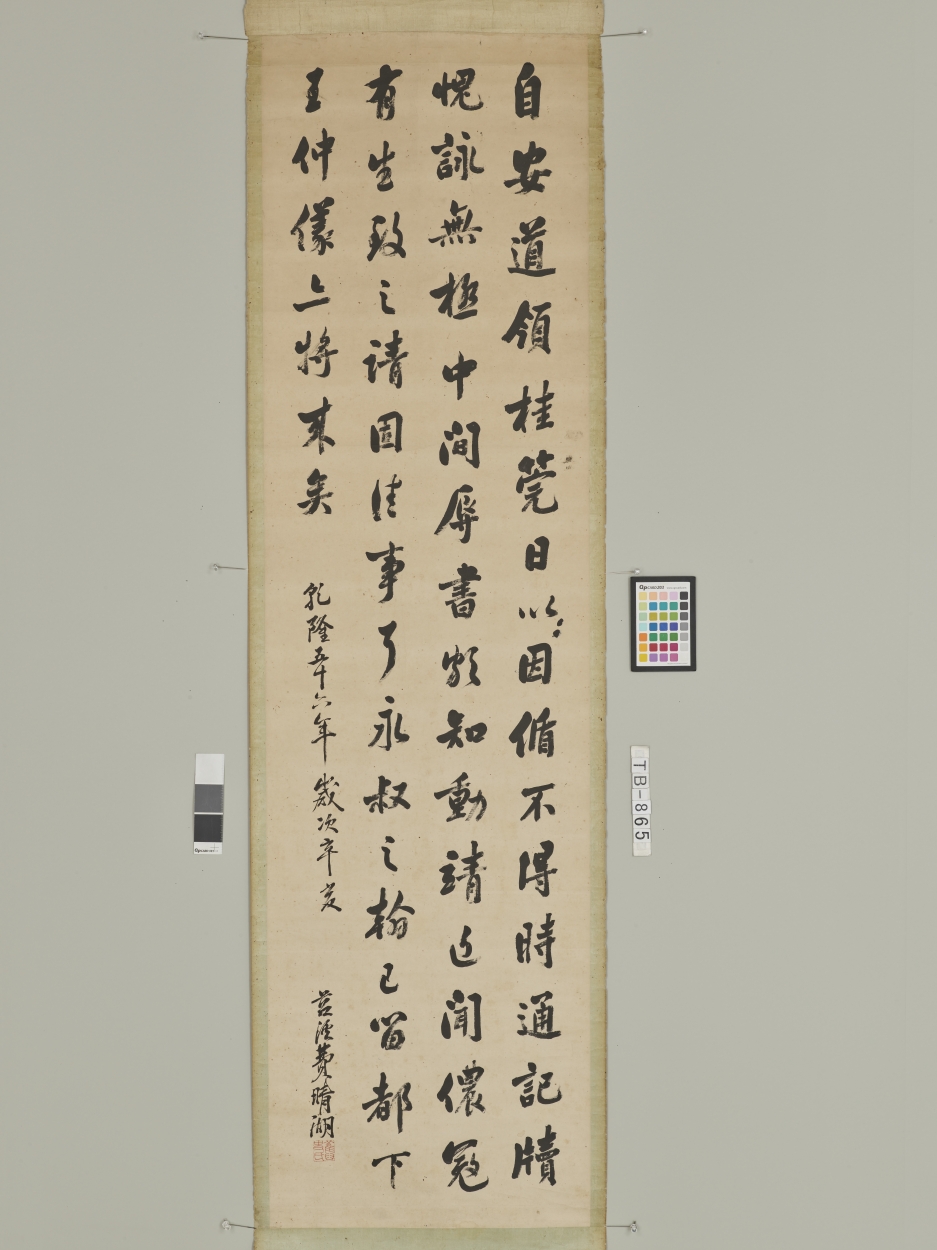 自安道領桂莞日以因循不得時通記牘
愧詠無極中間辱書頗知動靖近聞儂寇
有生致之請固佳事了永叔之翰已留都下
王仲儀亦將来矣
乾隆五十六年歲次辛亥
苕溪費晴湖
TB-865